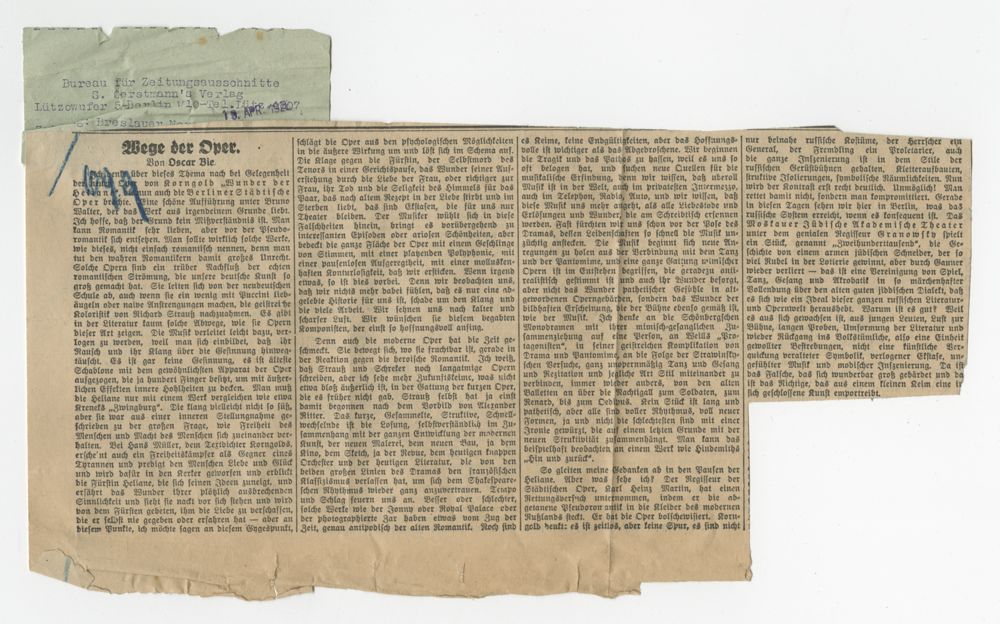 Bureau für Zeitungsausschnitte
S. Gerstmann's Verlag
Lützowufer 5-Berlin W10-Tel.Lütz.4807
13. APR. 1928
Breslauer
Wege der Oper.
Von Oscar Bie.
über dieses Thema nach bei Gelegenheit
von Korngolds „Wunder der
man auch die Berliner Städtische
Oper Eine schöne Aufführung unter Bruno
Walter, der das Werk aus irgendeinem Grunde liebt.
Ich hoffe, daß der Grund kein Mißverständnis ist. Man
kann Romantik sehr lieben, aber vor der Pseudo-
romantik sich entsetzen. Man sollte wirklich solche Werke,
wie dieses, nicht einfach romantisch nennen, denn man
tut den wahren Romantikern damit großes Unrecht.
Solche Opern sind ein trüber Nachlaß der echten
romantischen Strömung, die unsere deutsche Kunst so
groß gemacht hat. Sie leiten sich von der neudeutschen
Schule ab, auch wenn sie ein wenig mit Puccini lieb-
äugeln oder naive Anstrengungen machen, die geistreiche
Koloristik von Richard Strauß nachzuahmen. Es gibt
in der Literatur kaum solche Abwege, wie sie Opern
dieser Art zeigen. Die Musik verleitet leicht dazu, ver-
logen zu werden, weil man sich einbildet, daß ihr
Rausch und ihr Klang über die Gesinnung hinweg-
täuscht. Es ist gar keine Gesinnung, es ist älteste
Schablone mit dem gewöhnlichsten Apparat der Oper
aufgezogen, die ja hundert Finger besitzt, um mit äußer-
lichen Effekten innere Hohlheiten zu decken. Man muß
die Heliane nur mit einem Werk vergleichen wie etwa
Kreneks „Zwingburg". Die klang vielleicht nicht so süß,
aber sie war aus einer inneren Stellungnahme ge-
schrieben zu der großen Frage, wie Freiheit des
Menschen und Macht des Menschen sich zueinander ver-
halten. Bei Hans Müller, dem Textdichter Korngolds,
erscheint auch ein Freiheitskämpfer als Gegner eines
Tyrannen und predigt den Menschen Liebe und Glück
und wird dafür in den Kerker geworfen und erblickt
die Fürstin Heliane, die sich seinen Ideen zuneigt, und
erfährt das Wunder ihrer plötzlich ausbrechenden
Sinnlichkeit und sieht sie nackt vor sich stehen und wird
von dem Fürsten gebeten, ihm die Liebe zu verschaffen,
die er selbst nie gegeben oder erfahren hat — aber an
diesem Punkte, ich möchte sagen an diesem Gygespunkt,
schlägt die Oper aus den psychologischen Möglichkeiten
in die äußere Wirkung um und löst sich im Schema auf.
Die Klage gegen die Fürstin, der Selbstmord des
Tenors in einer Gerichtspause, das Wunder seiner Auf-
erstehung durch die Liebe der Frau, oder richtiger zur
Frau, ihr Tod und die Seligkeit des Himmels für das
Paar, das nach altem Rezept in der Liebe stirbt und im
Sterben liebt, das sind Ekstasen, die für uns nur
Theater bleiben. Der Musiker wühlt sich in diese
Falschheiten hinein, bringt es vorübergehend zu
interessanten Episoden oder ariosen Schönheiten, aber
bedeckt die ganze Fläche der Oper mit einem Geschlinge
von Stimmen, mit einer platzenden Polyphonie, mit
einer pausenlosen Aufgeregtheit, mit einer maßlosenhaften
Konturlosigkeit, daß wir ersticken. Wenn irgend
etwas, so ist dies vorbei. Denn wir beobachten uns,
daß wir nichts mehr dabei fühlen, daß es nur eine ab-
gelebte Historie für uns ist, schade um den Klang und
die viele Arbeit. Wir sehnen uns nach kalter und
scharfer Luft. Wir wünschen sie diesem begabten
Komponisten, der einst so hoffnungsvoll anfing.
Denn auch die moderne Oper hat die Zeit ge-
schmeckt. Sie bewegt sich, wo sie fruchtbar ist, gerade in
der Reaktion gegen die heroische Romantik. Ich weiß,
daß Strauß und Schreker noch langatmige Opern
schreiben, aber ich sehe mehr Zukunftskeime, was nicht
etwa bloß äußerlich ist, in der Gattung der kurzen Oper,
die es früher nicht gab. Strauß selbst hat ja einst
damit begonnen nach dem Vorbild von Alexander
Ritter. Das Kurze, Gesammelte, Strukture, Schnell-
wechselnde ist die Losung, selbstverständlich im Zu-
sammenhang mit der ganzen Entwicklung der modernen
Kunst, der neuen Malerei, dem Bau, ja dem
Kino, dem Sketch, ja der Revue, dem heutigen knappen
Orchester und der heutigen Literatur, die von den
beiden großen Linien des Dramas den französischen
Klassizismus verlassen hat, um sich dem Shakespeare-
schen Rhythmus wieder ganz anzuvertrauen. Tempo
und Schlag feuern uns an. Besser oder schlechter,
solche Werke wie der Jonny oder Royal Palace oder
der photographierte Zar haben etwas vom Zug der
Zeit, genau antipodisch der alten Romantik. Noch sind
es Keime, keine Endgültigkeiten, aber das Hoffnungs-
volle ist wichtiger als das Abgedroschene. Wir beginnen
die Tragik und das Pathos zu hassen, weil es uns so
oft belogen hat, und suchen neue Quellen für die
musikalische Erfindung, denn wir wissen, daß überall
Musik ist in der Welt, auch im privatesten Intermezzo,
auch im Telephon, Radio, Auto, und wir wissen, daß
diese Musik uns mehr angeht, als alle Liebestode und
Erlösungen und Wunder, die am Schreibtisch ersonnen
werden. Fast fürchten wir uns schon vor der Pose des
Dramas, dessen Leidenschaften so schnell die Musik un-
züchtig anstecken. Die Musik beginnt sich neue An-
regungen zu holen aus der Verbindung mit dem Tanz
und der Pantomime, und eine ganze Gattung mimischer
Opern ist im Entstehen begriffen, die geradezu anti-
realistisch gestimmt ist und auch ihr Wunder besorgt,
aber nicht das Wunder pathetischer Gefühle in alt-
gewordenen Operngebärden, sondern das Wunder der
bildhaften Erscheinung, die der Bühne ebenso gemäß ist,
wie der Musik. Ich denke an die Schönbergschen
Monodramen mit ihrer mimisch-gesanglichen Zu-
sammenziehung auf eine Person, an Weills „Pro-
tagonisten", in seiner geistreichen Komplikation von
Drama und Pantomime, an die Folge der Strawinsky-
schen Versuche, ganz unopernmäßig Tanz und Gesang
und Rezitation und jegliche Art Stil miteinander zu
verbinden, immer wieder anders, von den alten
Balletten an über die Nachtigall zum Soldaten, zum
Renard, bis zum Oedipus. Kein Stück ist lang und
pathetisch, aber alle sind voller Rhythmus, voll neuer
Formen, ja und nicht die schlechtesten sind mit einer
Ironie gewürzt, die auf einem letzten Grunde mit der
neuen Struktivität zusammenhängt. Man kann das
beispielhaft beobachten an einem Werk wie Hindemiths
„Hin und zurück".
So gleiten meine Gedanken ab in den Pausen der
Heliane. Aber was sehe ich? Der Regisseur der
Städtischen Oper, Karl Heinz Martin, hat einen
Rettungsversuch unternommen, indem er die ab-
getane Pseudoromantik in die Kleider des modernen
Rußlands steckt. Er hat die Oper bolschewisiert. Korn-
gold denkt: es ist zeitlos, aber keine Spur, es sind nicht
nur beinahe russische Kostüme, der Herrscher ein
General, der Fremdling ein Proletarier, auch
die ganze Inszenierung ist in dem Stile der
russischen Gerüstbühnen gehalten. Kletteraufbauten,
struktive Isolierungen, symbolische Räumlichkeiten. Nun
wird der Kontrast erst recht deutlich. Unmöglich! Man
rettet damit nichts, sondern man kompromittiert. Gerade
in diesen Tagen sehen wir hier in Berlin, was das
russische System erreicht, wenn es konsequent ist. Das
Moskauer Jüdische Akademische Theater
unter dem genialen Regisseur Granowsky spielt
ein Stück, genannt „Zweihunderttausend", die Ge-
schichte von einem armen jüdischen Schneider, der so
viel Rubel in der Lotterie gewinnt, aber durch Gauner
wieder verliert — das ist eine Vereinigung von Spiel,
Tanz, Gesang und Akrobatik in so märchenhafter
Vollendung über den alten guten jüdischen Dialekt, daß
es sich wie ein Ideal dieser ganzen russischen Literatur-
und Opernwelt heraushebt. Warum ist es gut? Weil
es aus sich gewachsen ist, aus jungen Leuten, Lust zur
Bühne, langen Proben, Umformung der Literatur und
wieder Rückgang ins Volkstümliche, also eine Einheit
gewollter Bestrebungen, nicht eine künstliche Ver-
quickung veralteter Symbolik, verlogener Ekstase, un-
gefühlter Musik und modischer Inszenierung. Da ist
das Falsche, das sich wunderbar groß gebärdet und da
ist das Richtige, das aus einem kleinen Keim eine in
sich geschlossene Kunst emportreibt.